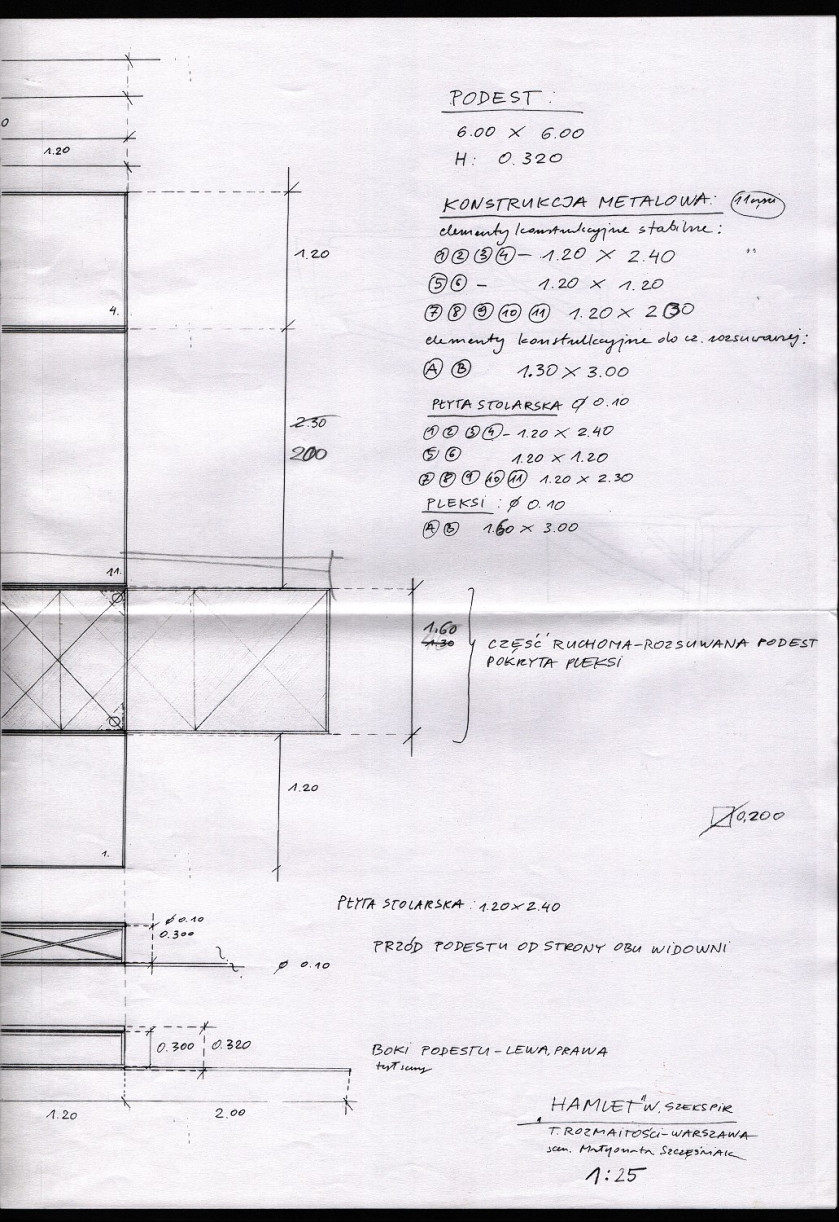 0
1.20
PODEST:
6.00 × 6.00
H: 0.320
KONSTRUKCJA METALOWA: 11 części
elementy konstrukcyjne stabilne:
① ② ③ ④ – 1.20 × 2.40
⑤ ⑥ – 1.20 × 1.20
⑦ ⑧ ⑨ ⑩ ⑪ 1.20 × 2.00
elementy konstrukcyjne do cz. rozsuwanej:
Ⓐ Ⓑ 1.30 × 3.00
PŁYTA STOLARSKA ∅ 0.10
① ② ③ ④ – 1.20 × 2.40
⑤ ⑥ 1.20 × 1.20
⑦ ⑧ ⑨ ⑩ ⑪ 1.20 × 2.30
PLEKSI: ∅ 0.10
Ⓐ Ⓑ 1.60 × 3.00
1.20
4.
2.30
200
11.
1.60
1.30
CZĘŚĆ RUCHOMA-ROZSUWANA PODEST
POKRYTA PLEKSI
1.20
1.
0,200
PŁYTA STOLARSKA: 1.20 × 2.40
∅ 0.10
0.300
PRZÓD PODESTU OD STRONY OBU WIDOWNI
∅ 0.10
0.300
0.320
BOKI PODESTU – LEWA, PRAWA
1.20
2.00
"HAMLET" W. SZEKSPIR
T. ROZMAITOŚCI – WARSZAWA
scen. Małgorzata SZCZĘŚNIAK
1:25